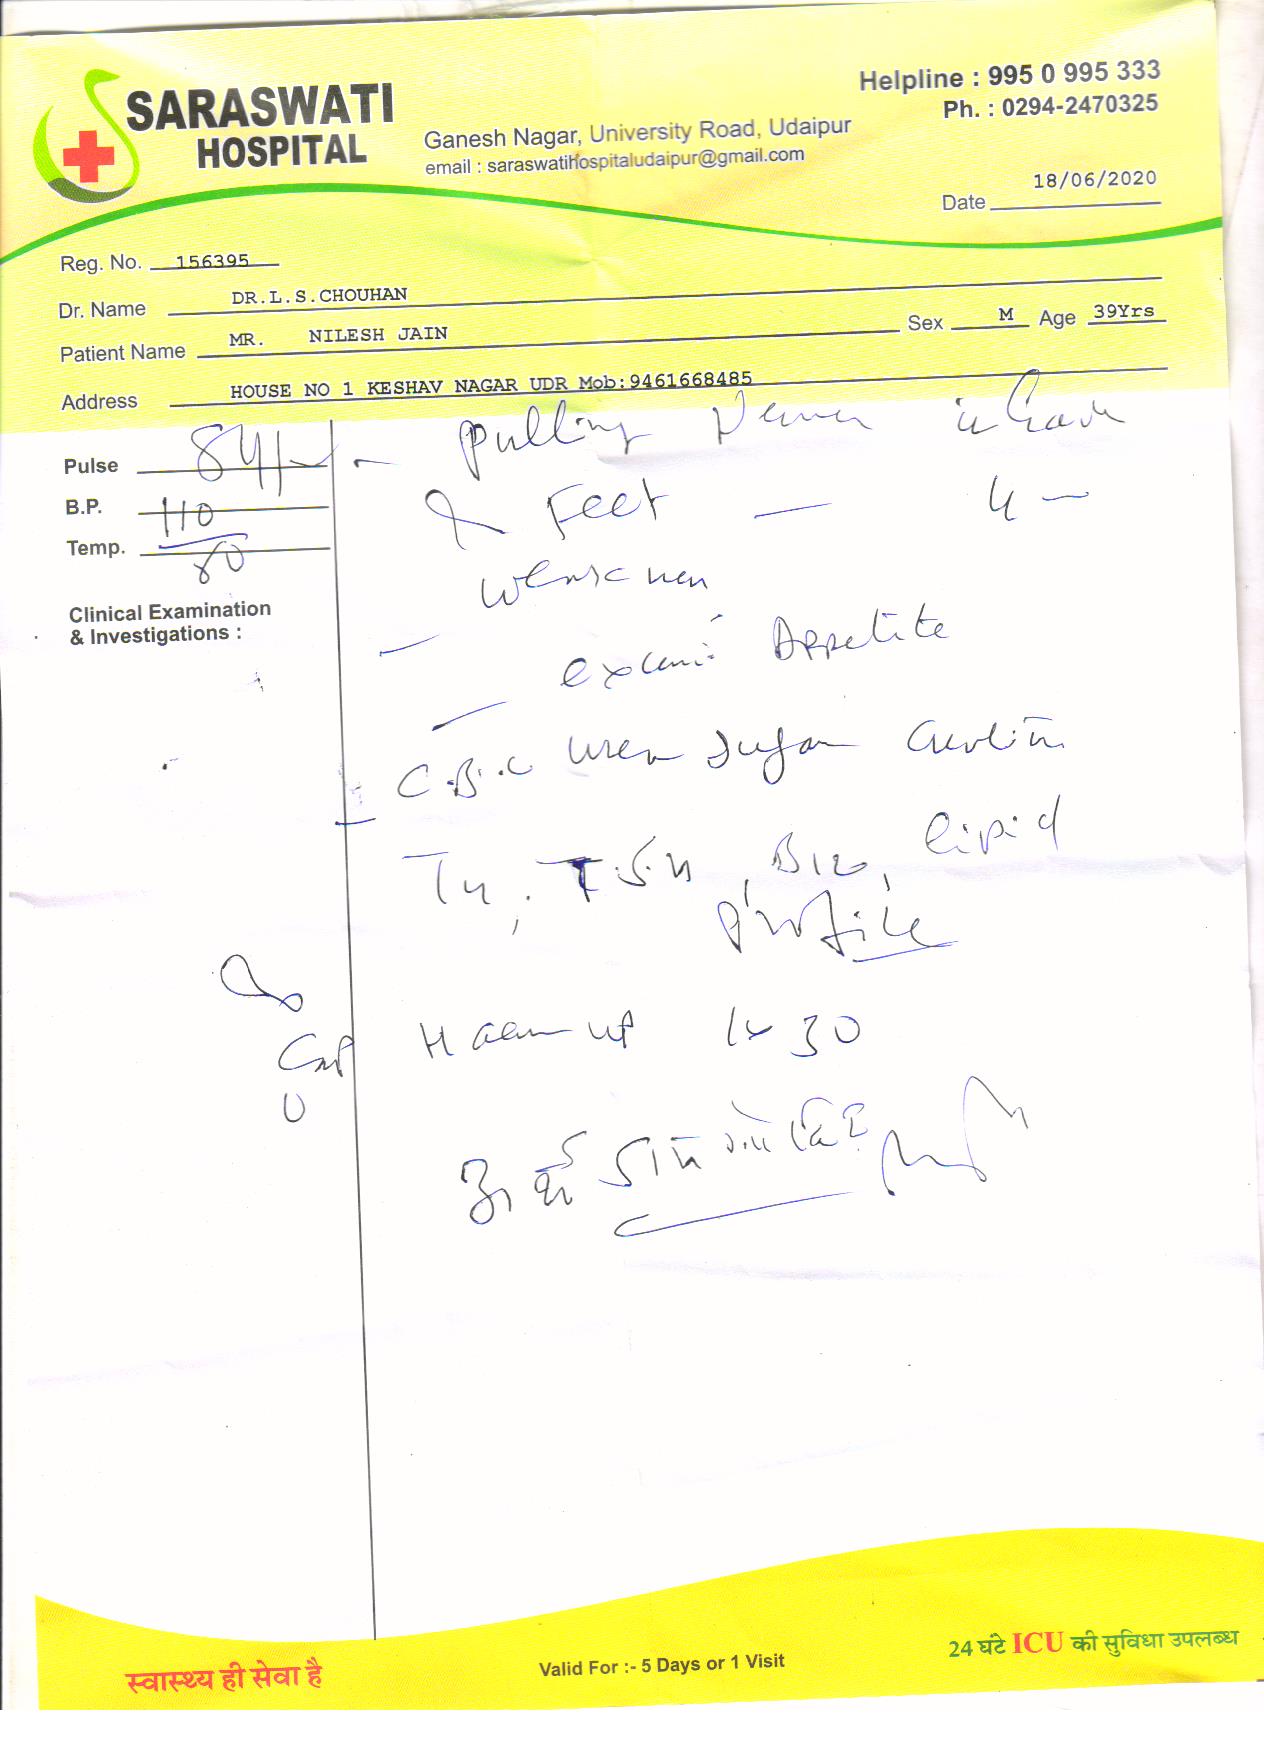 SARASWATI
HOSPITAL
Ganesh Nagar, University Road, Udaipur
email : saraswatihospitaludaipur@gmail.com
Helpline : 995 0 995 333
Ph. : 0294-2470325
Date 18/06/2020
Reg. No. 156395
Dr. Name DR.L.S.CHOUHAN
Patient Name MR. NILESH JAIN Sex M Age 39Yrs
Address HOUSE NO 1 KESHAV NAGAR UDR Mob:9461668485
Pulse 84/
B.P. 110
80
Temp.
Clinical Examination
& Investigations :
- Pulling
& Feet —
—
— Appetite
C.B.C Urea Sugar
, T.S.H, B12, Lipid
Profile
Cap 1x30
स्वास्थ्य ही सेवा है
Valid For :- 5 Days or 1 Visit
24 घंटे ICU की सुविधा उपलब्ध